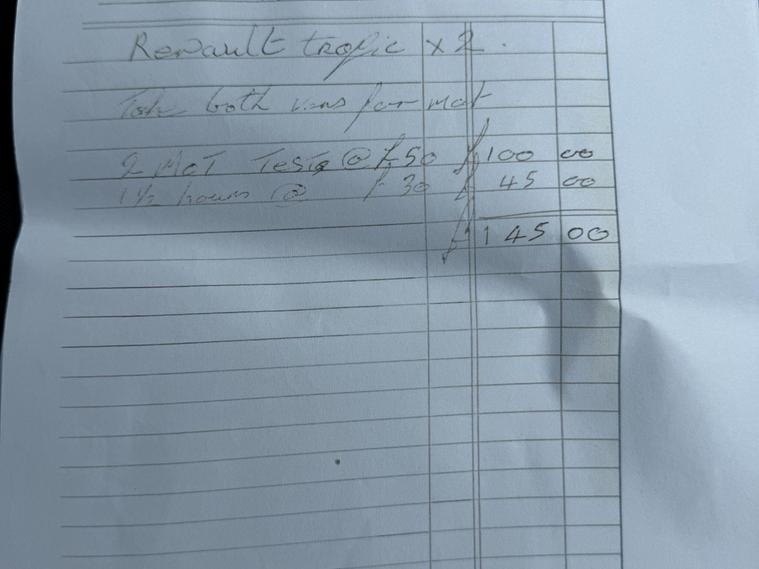 Renault trafic x 2.
Take both vans for mot
2 MOT Tests @ £50 £ 100 00
1 1/2 hours @ £30 £ 45 00
£ 145 00